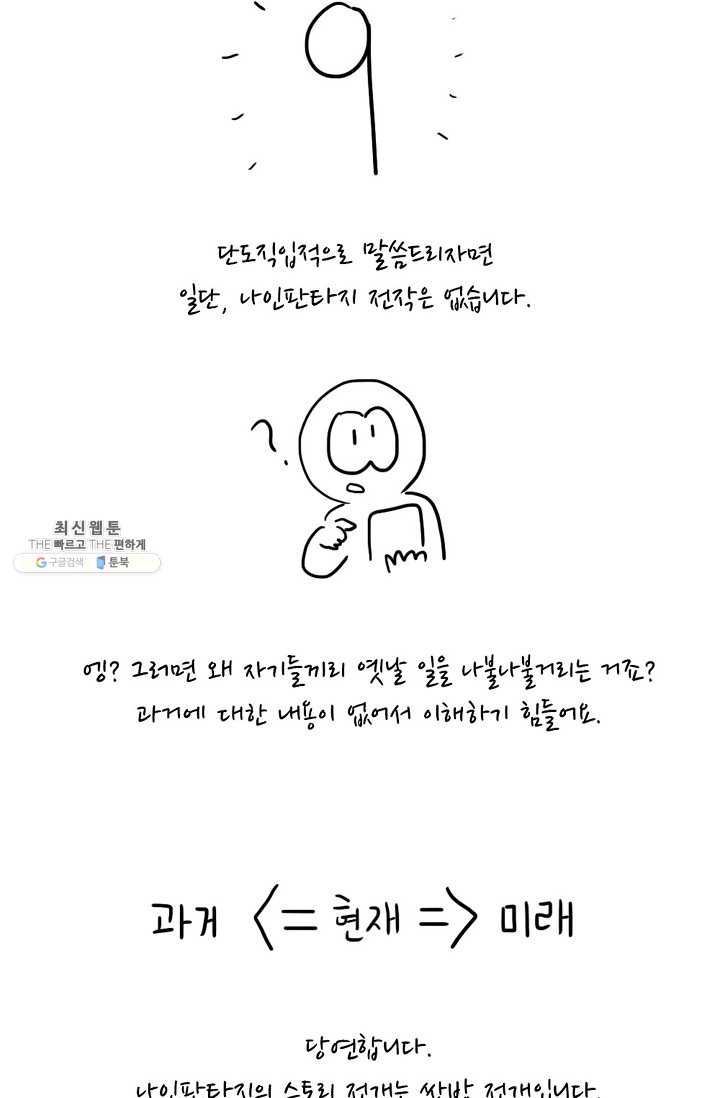 단도직입적으로 말씀드리자면
일단, 나인판타지 전작은 없습니다.
?
최신웹툰
THE 빠르고 THE 편하게
구글검색 툰북
엥? 그러면 왜 자기들끼리 옛날 일을 나불나불거리는 거죠?
과거에 대한 내용이 없어서 이해하기 힘들어요.
과거 <= 현재 => 미래
당연합니다.
나인판타지의 스토리 전개는 쌍방 전개입니다.